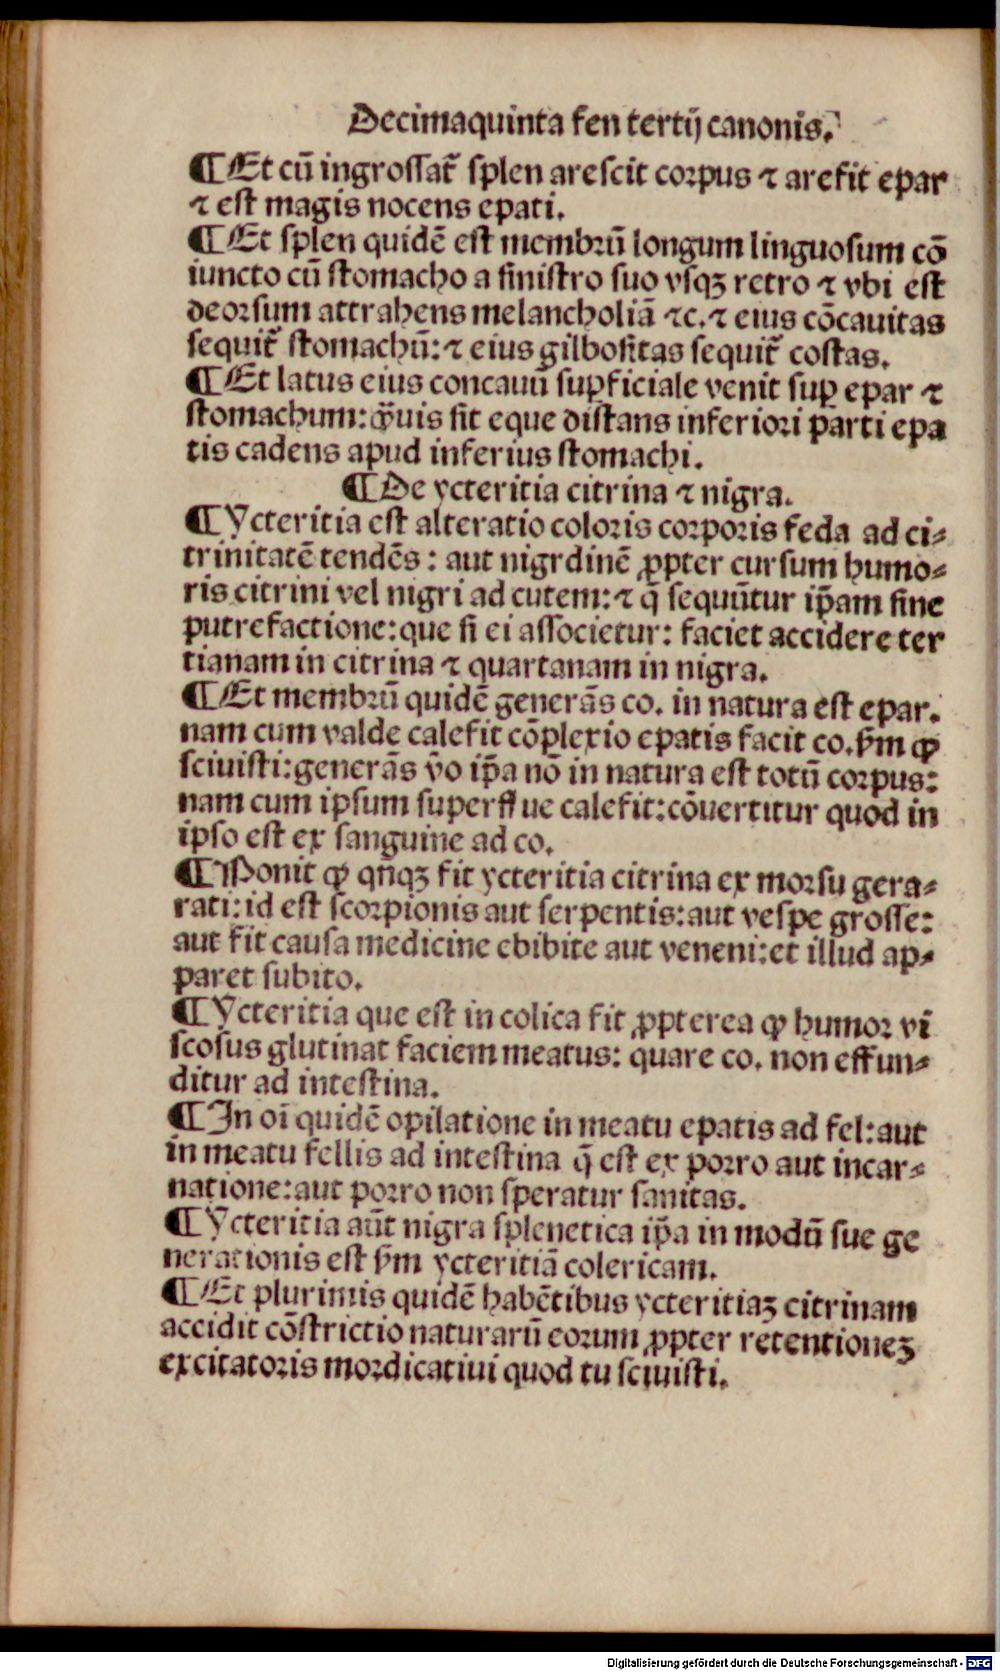 Decimaquinta fen tertij canonis.
¶ Et cū ingrossat̄ splen arescit corpus ⁊ arefit epar
⁊ est magis nocens epati.
¶ Et splen quidē est membrū longum linguosum cō
iuncto cū stomacho a sinistro suo vsqꝫ retro ⁊ vbi est
deorsum attrahens melancholiā ⁊c. ⁊ eius cōcauitas
sequit̄ stomachū: ⁊ eius gilbositas sequit̄ costas.
¶ Et latus eius concauū suꝑficiale venit suꝑ epar ⁊
stomachum: q̄uis sit eque distans inferiori parti epa
tis cadens apud inferius stomachi.
¶ De ycteritia citrina ⁊ nigra.
¶ Ycteritia est alteratio coloris corporis feda ad ci⸗
trinitatē tendēs: aut nigrdinē ꝓpter cursum humo⸗
ris citrini vel nigri ad cutem: ⁊ q̄ sequūtur ip̄am sine
putrefactione: que si ei associetur: faciet accidere ter
tianam in citrina ⁊ quartanam in nigra.
¶ Et membrū quidē generās co. in natura est epar.
nam cum valde calefit cōplexio epatis facit co. ẜm ꝙ
sciuisti: generās ṽo ip̄a nō in natura est totū corpus:
nam cum ipsum superflue calefit: cōuertitur quod in
ipso est ex sanguine ad co.
¶ Ponit ꝙ qn̄qꝫ fit ycteritia citrina ex morsu gera⸗
rati: id est scorpionis aut serpentis: aut vespe grosse:
aut fit causa medicine ebibite aut veneni: et illud ap⸗
paret subito.
¶ Ycteritia que est in colica fit ꝓpterea ꝙ humor vi
scosus glutinat faciem meatus: quare co. non effun⸗
ditur ad intestina.
¶ In oī quidē opilatione in meatu epatis ad fel: aut
in meatu fellis ad intestina q̄ est ex porro aut incar⸗
natione: aut porro non speratur sanitas.
¶ Ycteritia aūt nigra splenetica ip̄a in modū sue ge
nerationis est ẜm ycteritiā colericam.
¶ Et plurimis quidē habētibus ycteritiaꝫ citrinam
accidit cōstrictio naturarū eorum ꝓpter retentioneꝫ
excitatoris mordicatiui quod tu sciuisti.
Digitalisierung gefördert durch die Deutsche Forschungsgemeinschaft - DFG